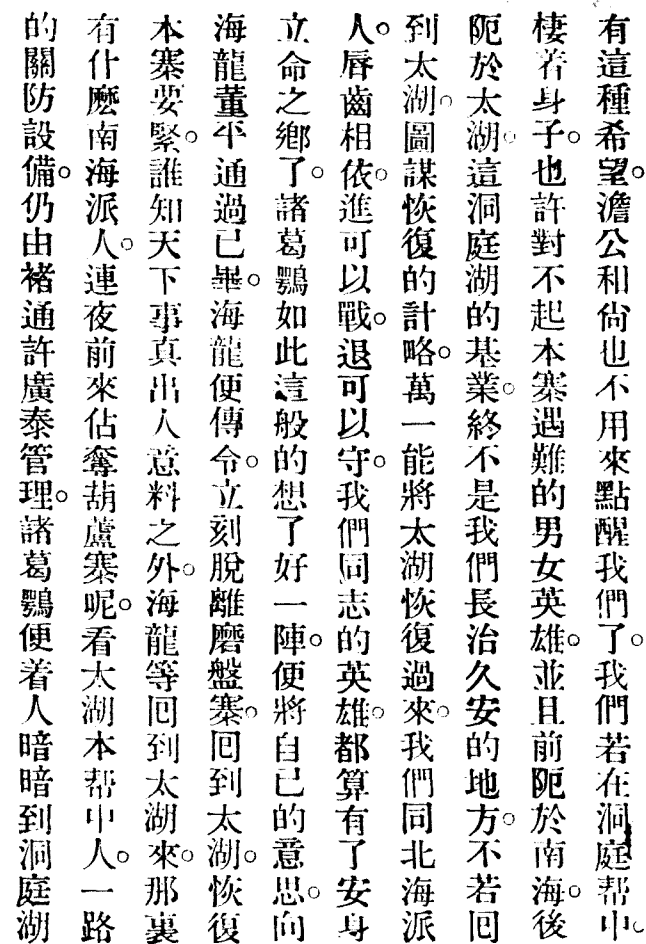 有這種希望。澹公和尙也不用來點醒我們了。我們若在洞庭帮中。
棲着身子。也許對不起本寨遇難的男女英雄。並且前阨於南海。後
阨於太湖。這洞庭湖的基業。終不是我們長治久安的地方。不若回
到太湖。圖謀恢復的計略。萬一能將太湖恢復過來。我們同北海派
人。唇齒相依。進可以戰。退可以守。我們同志的英雄。都算有了安身
立命之鄉了。諸葛鶚如此這般的想了好一陣。便將自己的意思。向
海龍董平通過已畢。海龍便傳令。立刻脫離磨盤寨。回到太湖。恢復
本寨要緊。誰知天下事真出人意料之外。海龍等回到太湖來。那裏
有什麽南海派人。連夜前來佔奪葫蘆寨呢。看太湖本帮中人。一路
的關防設備。仍由褚通許廣泰管理。諸葛鶚便着人暗暗到洞庭湖